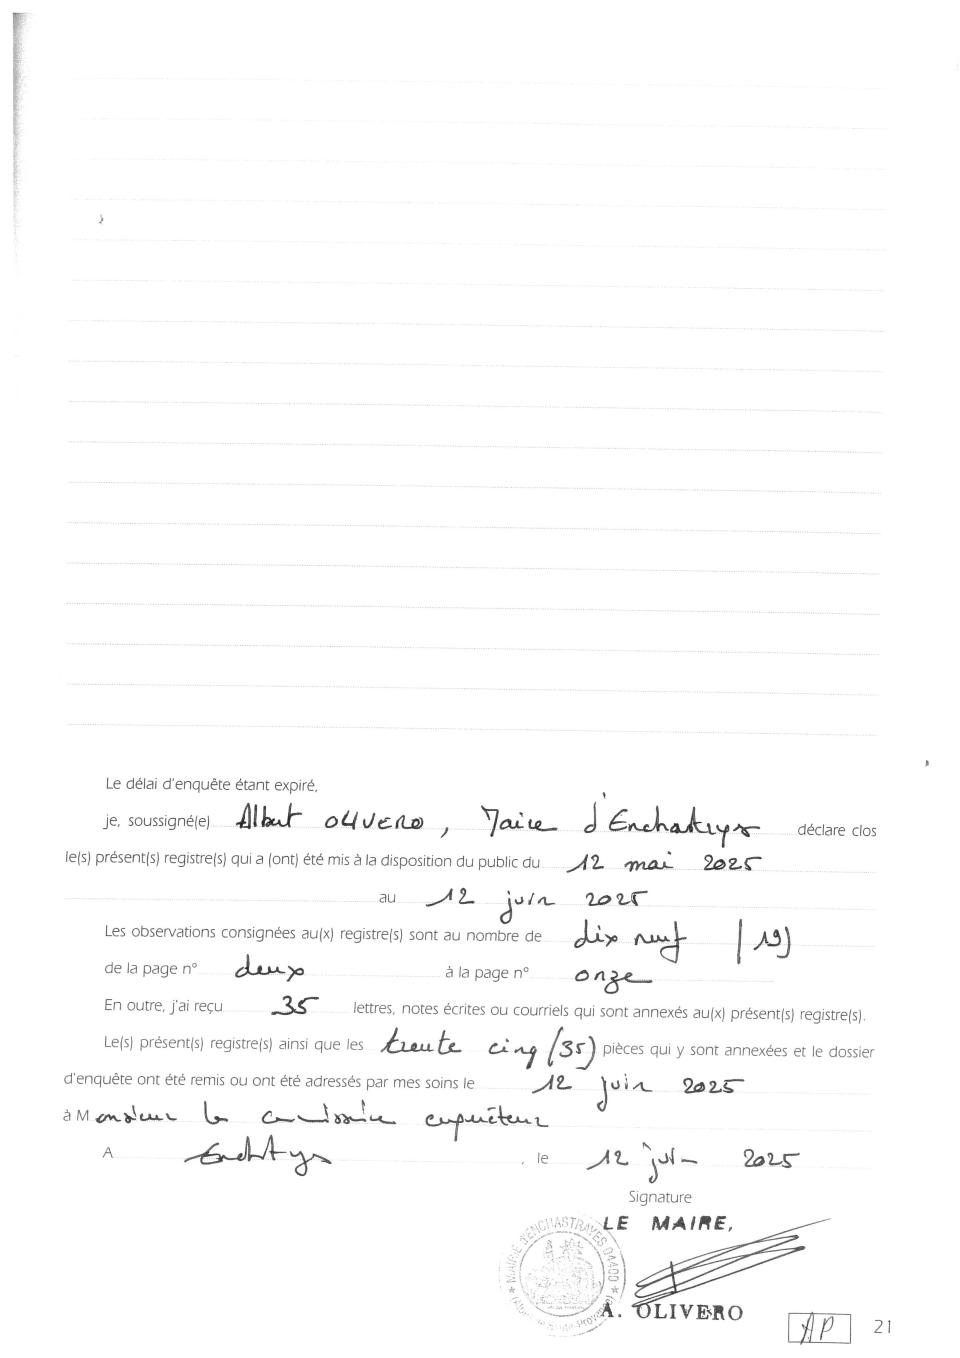 Le délai d'enquête étant expiré,
je, soussigné(e) Albert OLIVERO, Maire d'Enchastrayes déclare clos
le(s) présent(s) registre(s) qui a (ont) été mis à la disposition du public du 12 mai 2025
au 12 juin 2025
Les observations consignées au(x) registre(s) sont au nombre de dix neuf (19)
de la page n° deux à la page n° onze
En outre, j'ai reçu 35 lettres, notes écrites ou courriels qui sont annexés au(x) présent(s) registre(s).
Le(s) présent(s) registre(s) ainsi que les trente cinq (35) pièces qui y sont annexées et le dossier
d'enquête ont été remis ou ont été adressés par mes soins le 12 juin 2025
à Monsieur le commissaire enquêteur
A Enchastrayes, le 12 juin 2025
Signature
LE MAIRE,
MAIRIE D'ENCHASTRAYES 04400
A. OLIVERO
AP 21